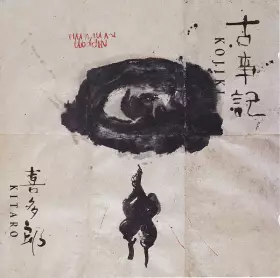 古事記
KOJIKI
喜多郎
KITARO